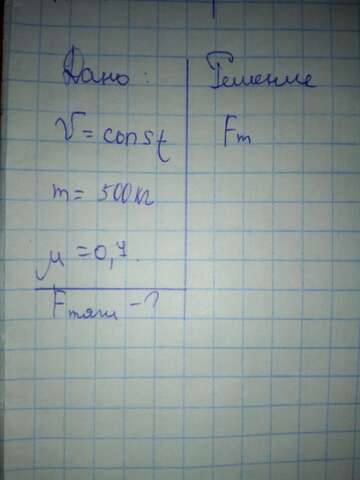 Дано:
V = const
m = 500 кг
μ = 0,7.
Fтяги - ?
Решение
Fт